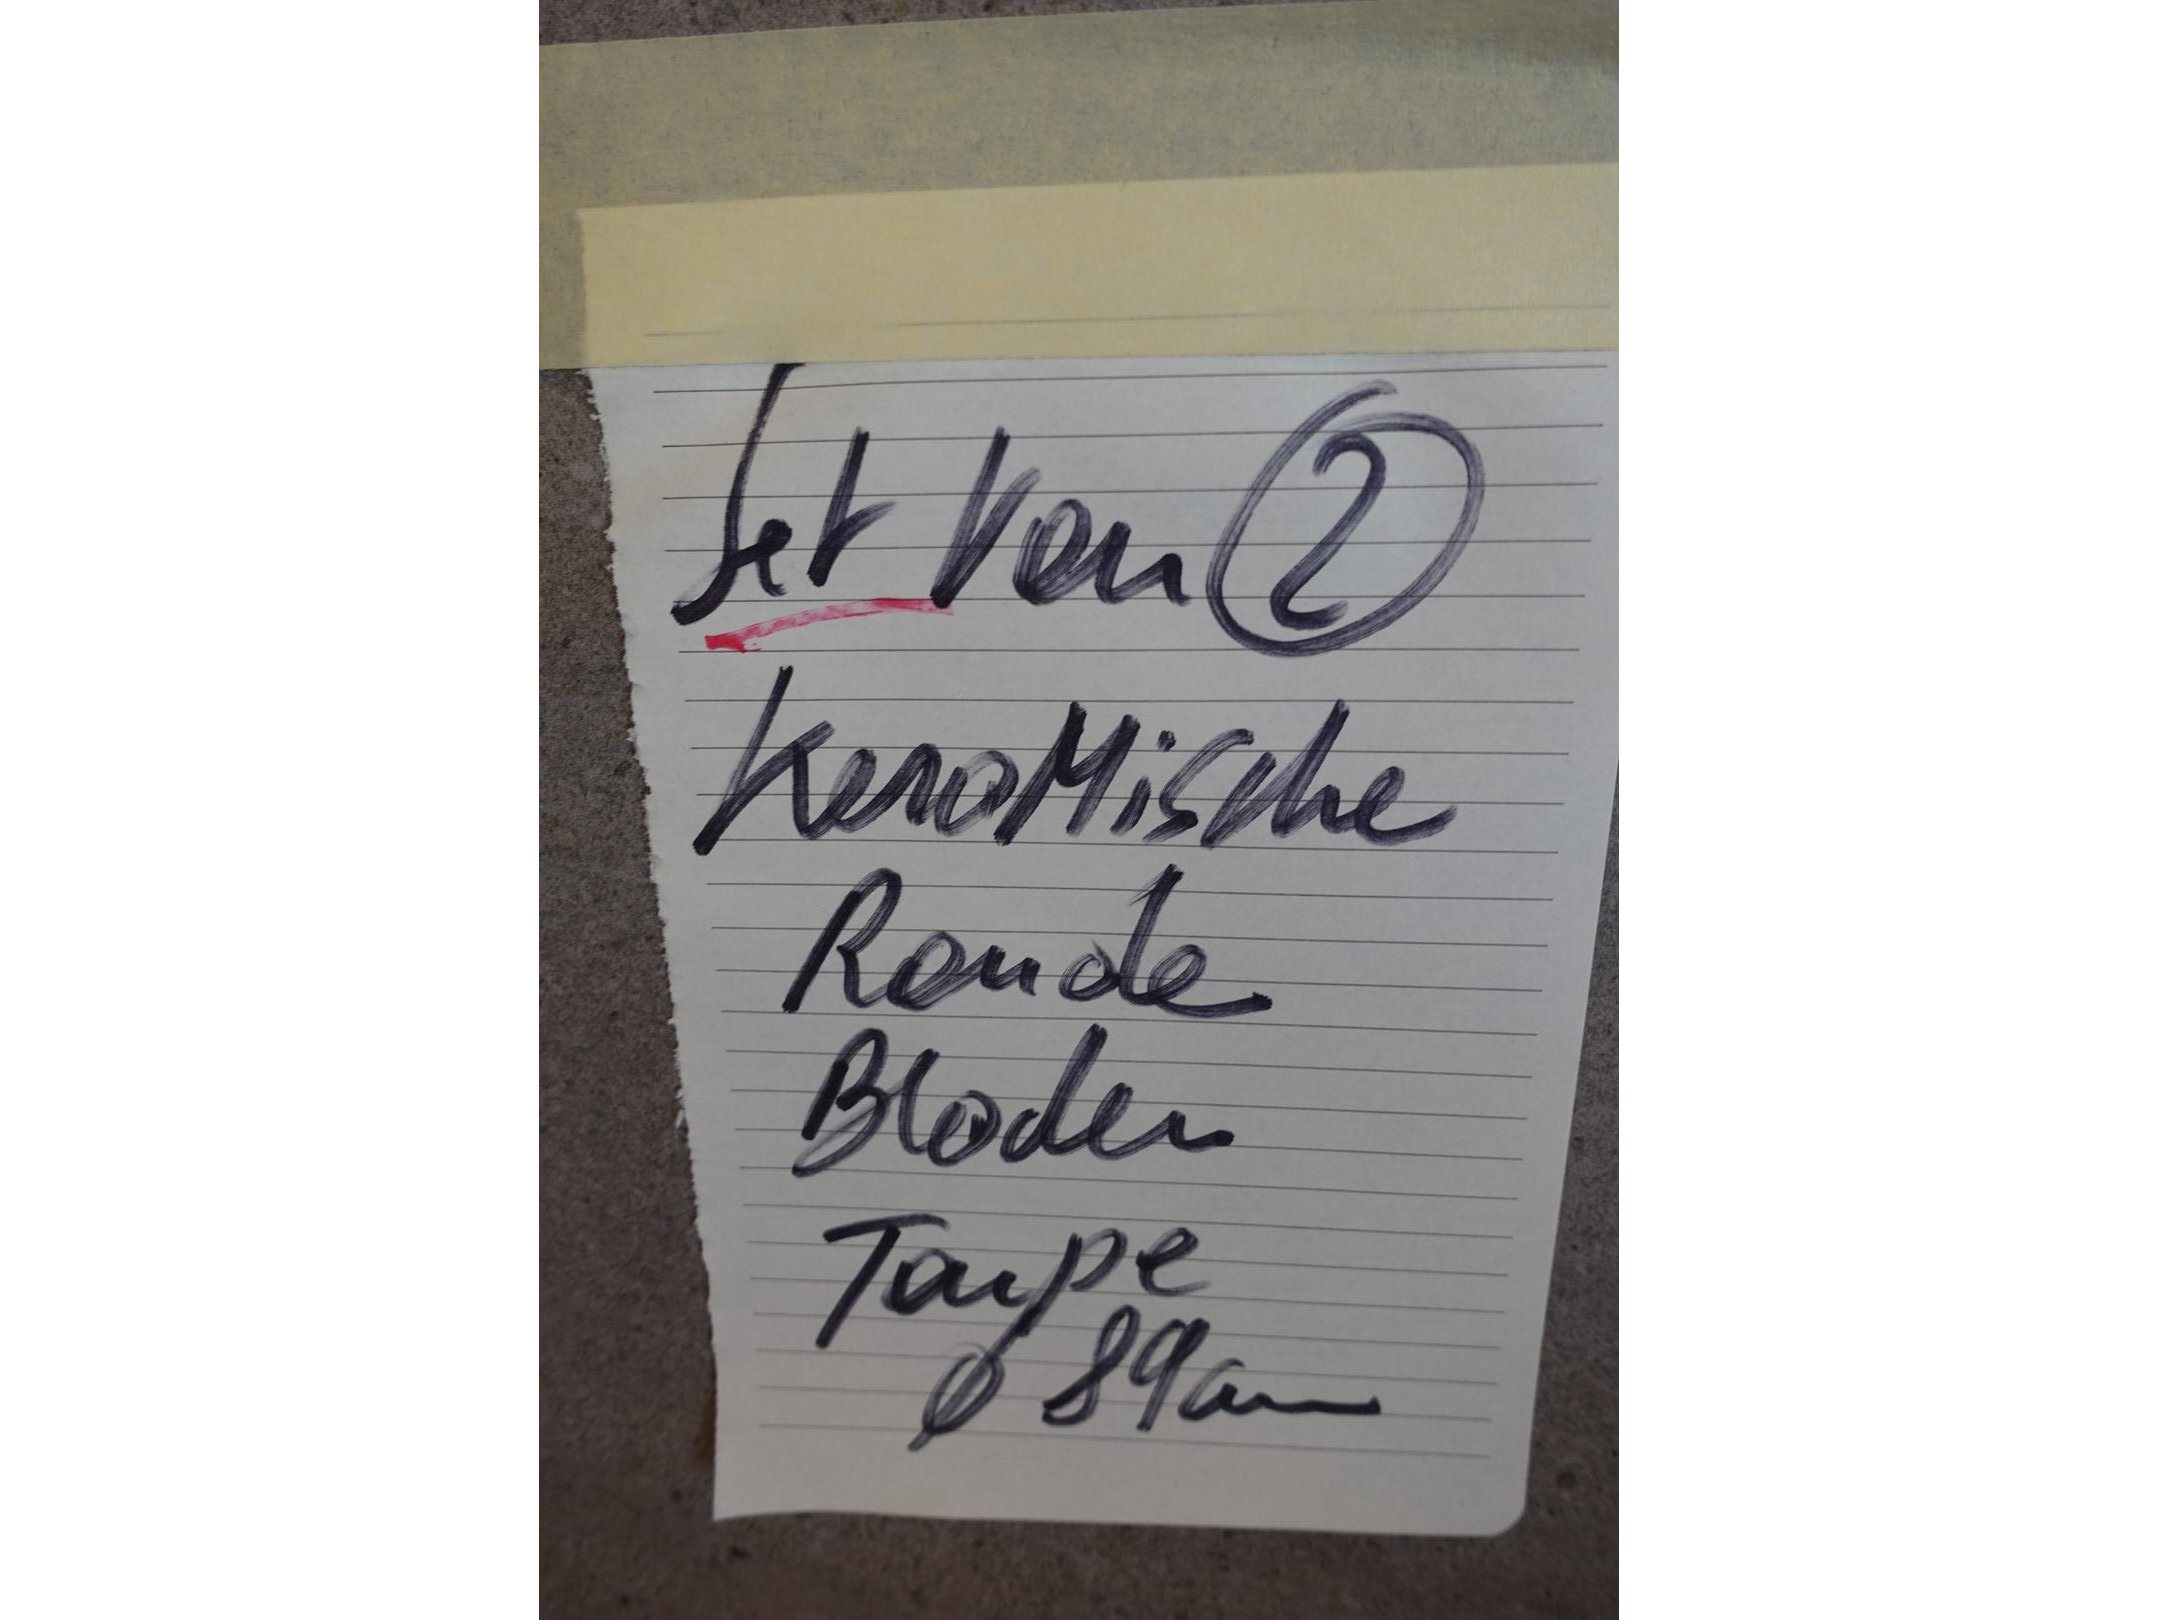 Set Van 2
KeraMische
Ronde
Bladen
Taupe
ø 89cm